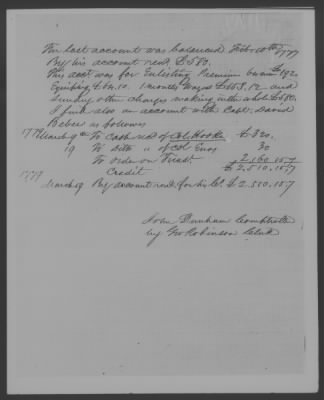 His last account was balanced Feb 10th 1777
By his account rend £580.
This acct was for Enlisting Premium being £192
Equiping £64.10. 1 months Wages £158.12 and
Sundry other charges making in the whole £580.
I find also an account with Capt. David
Bebee as follows
1779 March 9 To Cash recd of Col. Hooker £320.
19 To ditto " of Col Enos 30
To Order on Treasr. 2,160.15.7
£2,510.15.7
Credit
1779
March 19 By account rend for his Co. £2.510.15.7
John Dunham Comptroller
by Geo Robinson Clerk